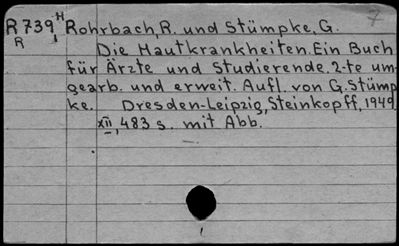 7
R 739 H Rohrbach, R. und Stümpke, G.
R 1 Die Hautkrankheiten. Ein Buch
für Ärzte und Studierende. 2-te um-
gearb. und erweit. Aufl. von G. Stümp
ke. Dresden-Leipzig, Steinkopff, 1949
XII, 483 s. mit Abb.